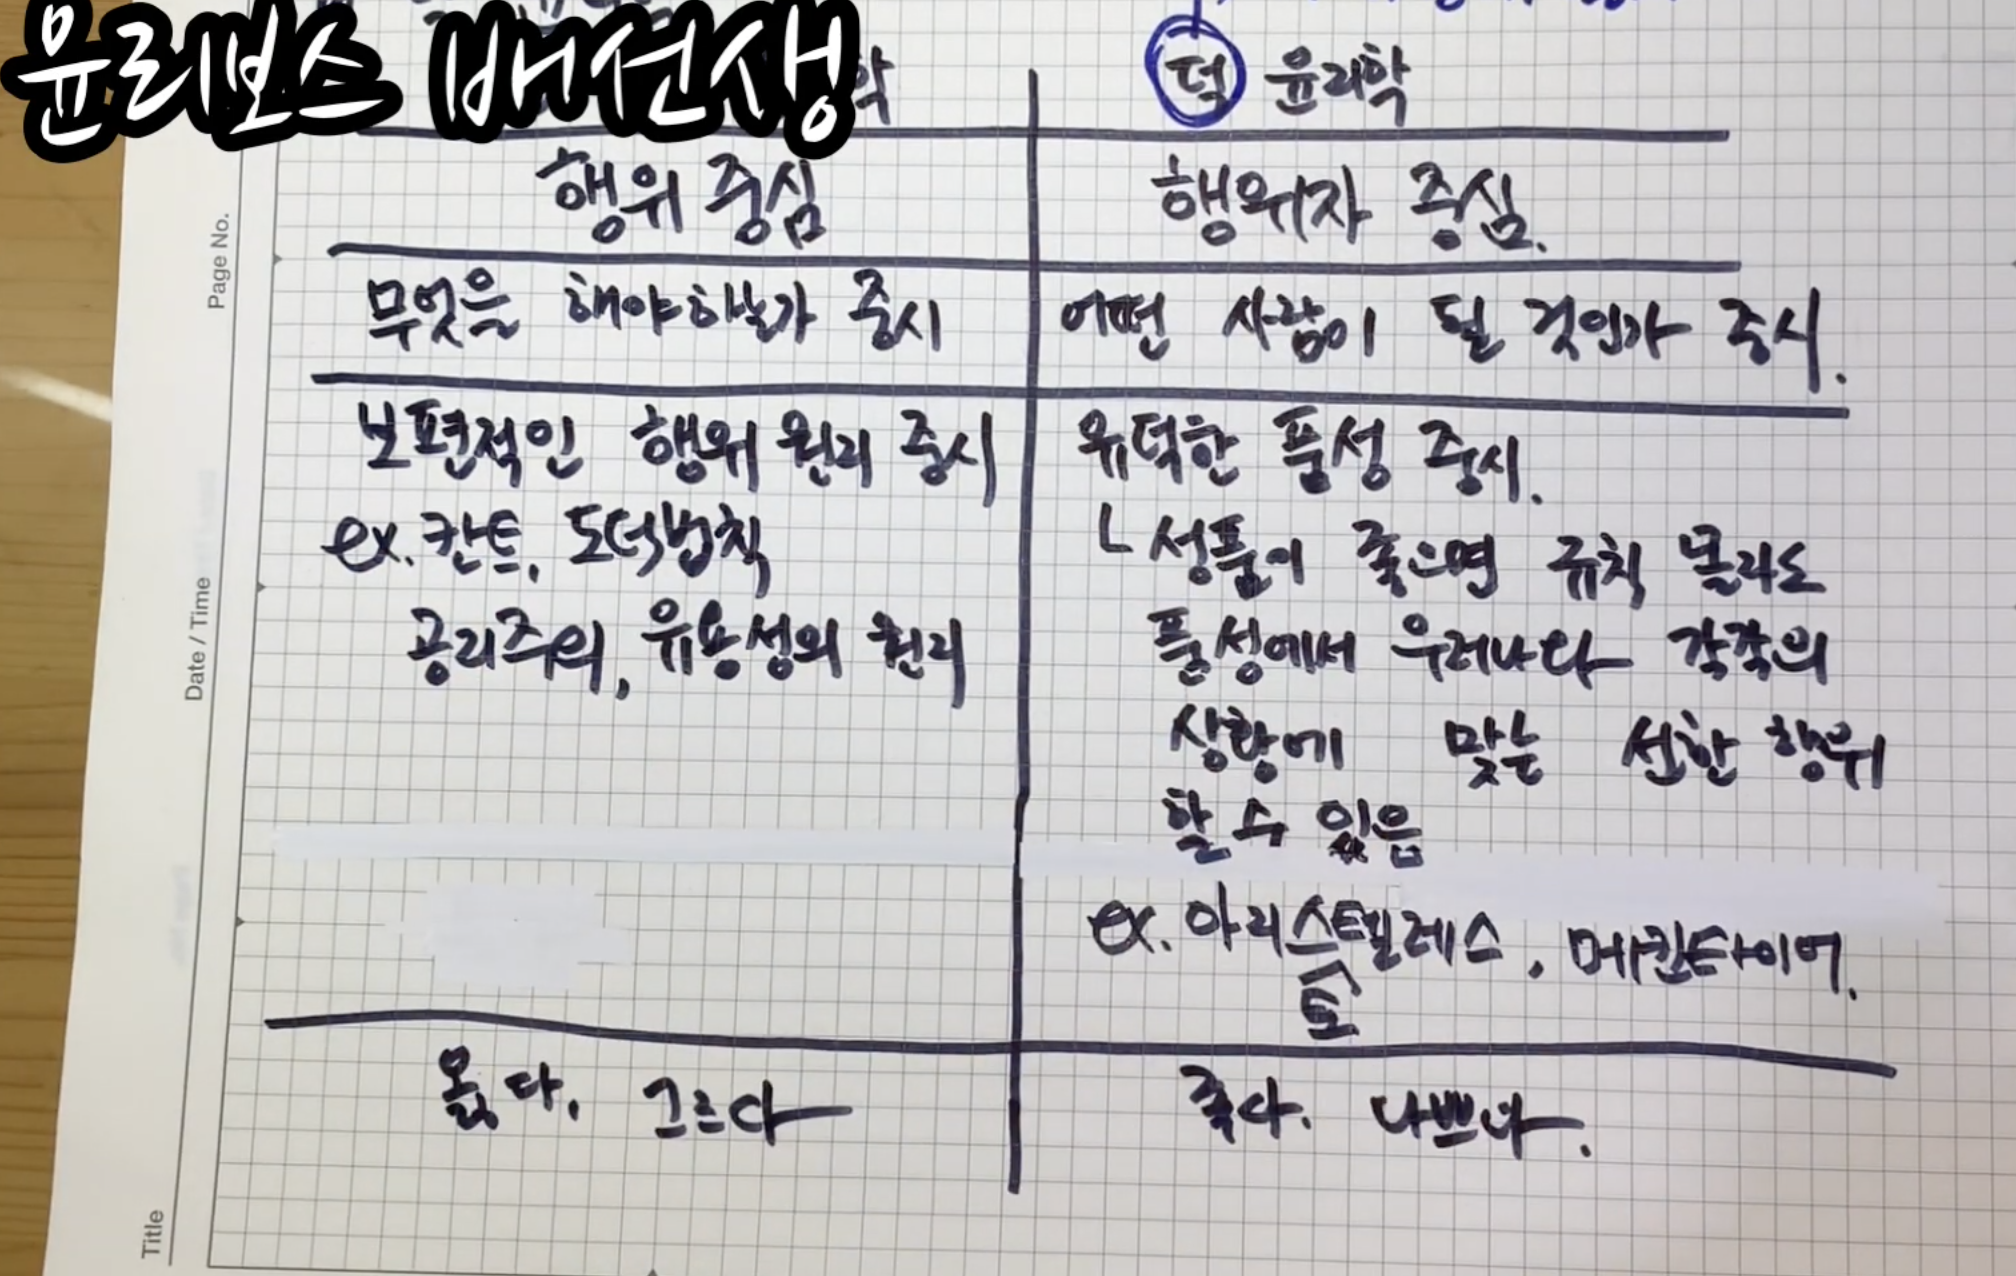 윤리보스 배선생
학
덕 윤리학
행위 중심
행위자 중심.
무엇을 해야하는가 중시
어떤 사람이 될 것인가 중시.
보편적인 행위 원리 중시
ex. 칸트, 도덕법칙
공리주의, 유용성의 원리
유덕한 품성 중시.
└ 성품이 좋으면 규칙 몰라도
품성에서 우러나와 각각의
상황에 맞는 선한 행위
할 수 있음
ex. 아리스텔레스, 매킨타이어.
토
옳다, 그르다
좋다. 나쁘다.
Page No.
Date / Time
Title